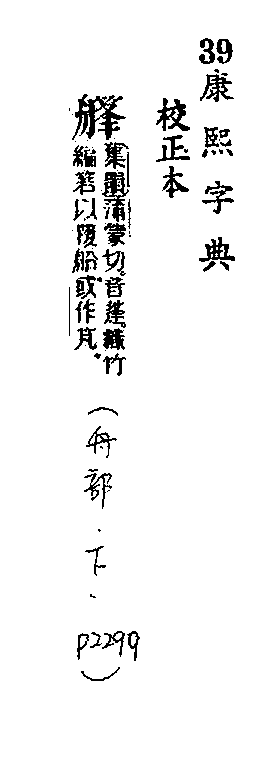 39康熙字典
校正本
艂
集韻蒲蒙切。音蓬。織竹
編箬以覆船。或作
(舟部.下.P2299)